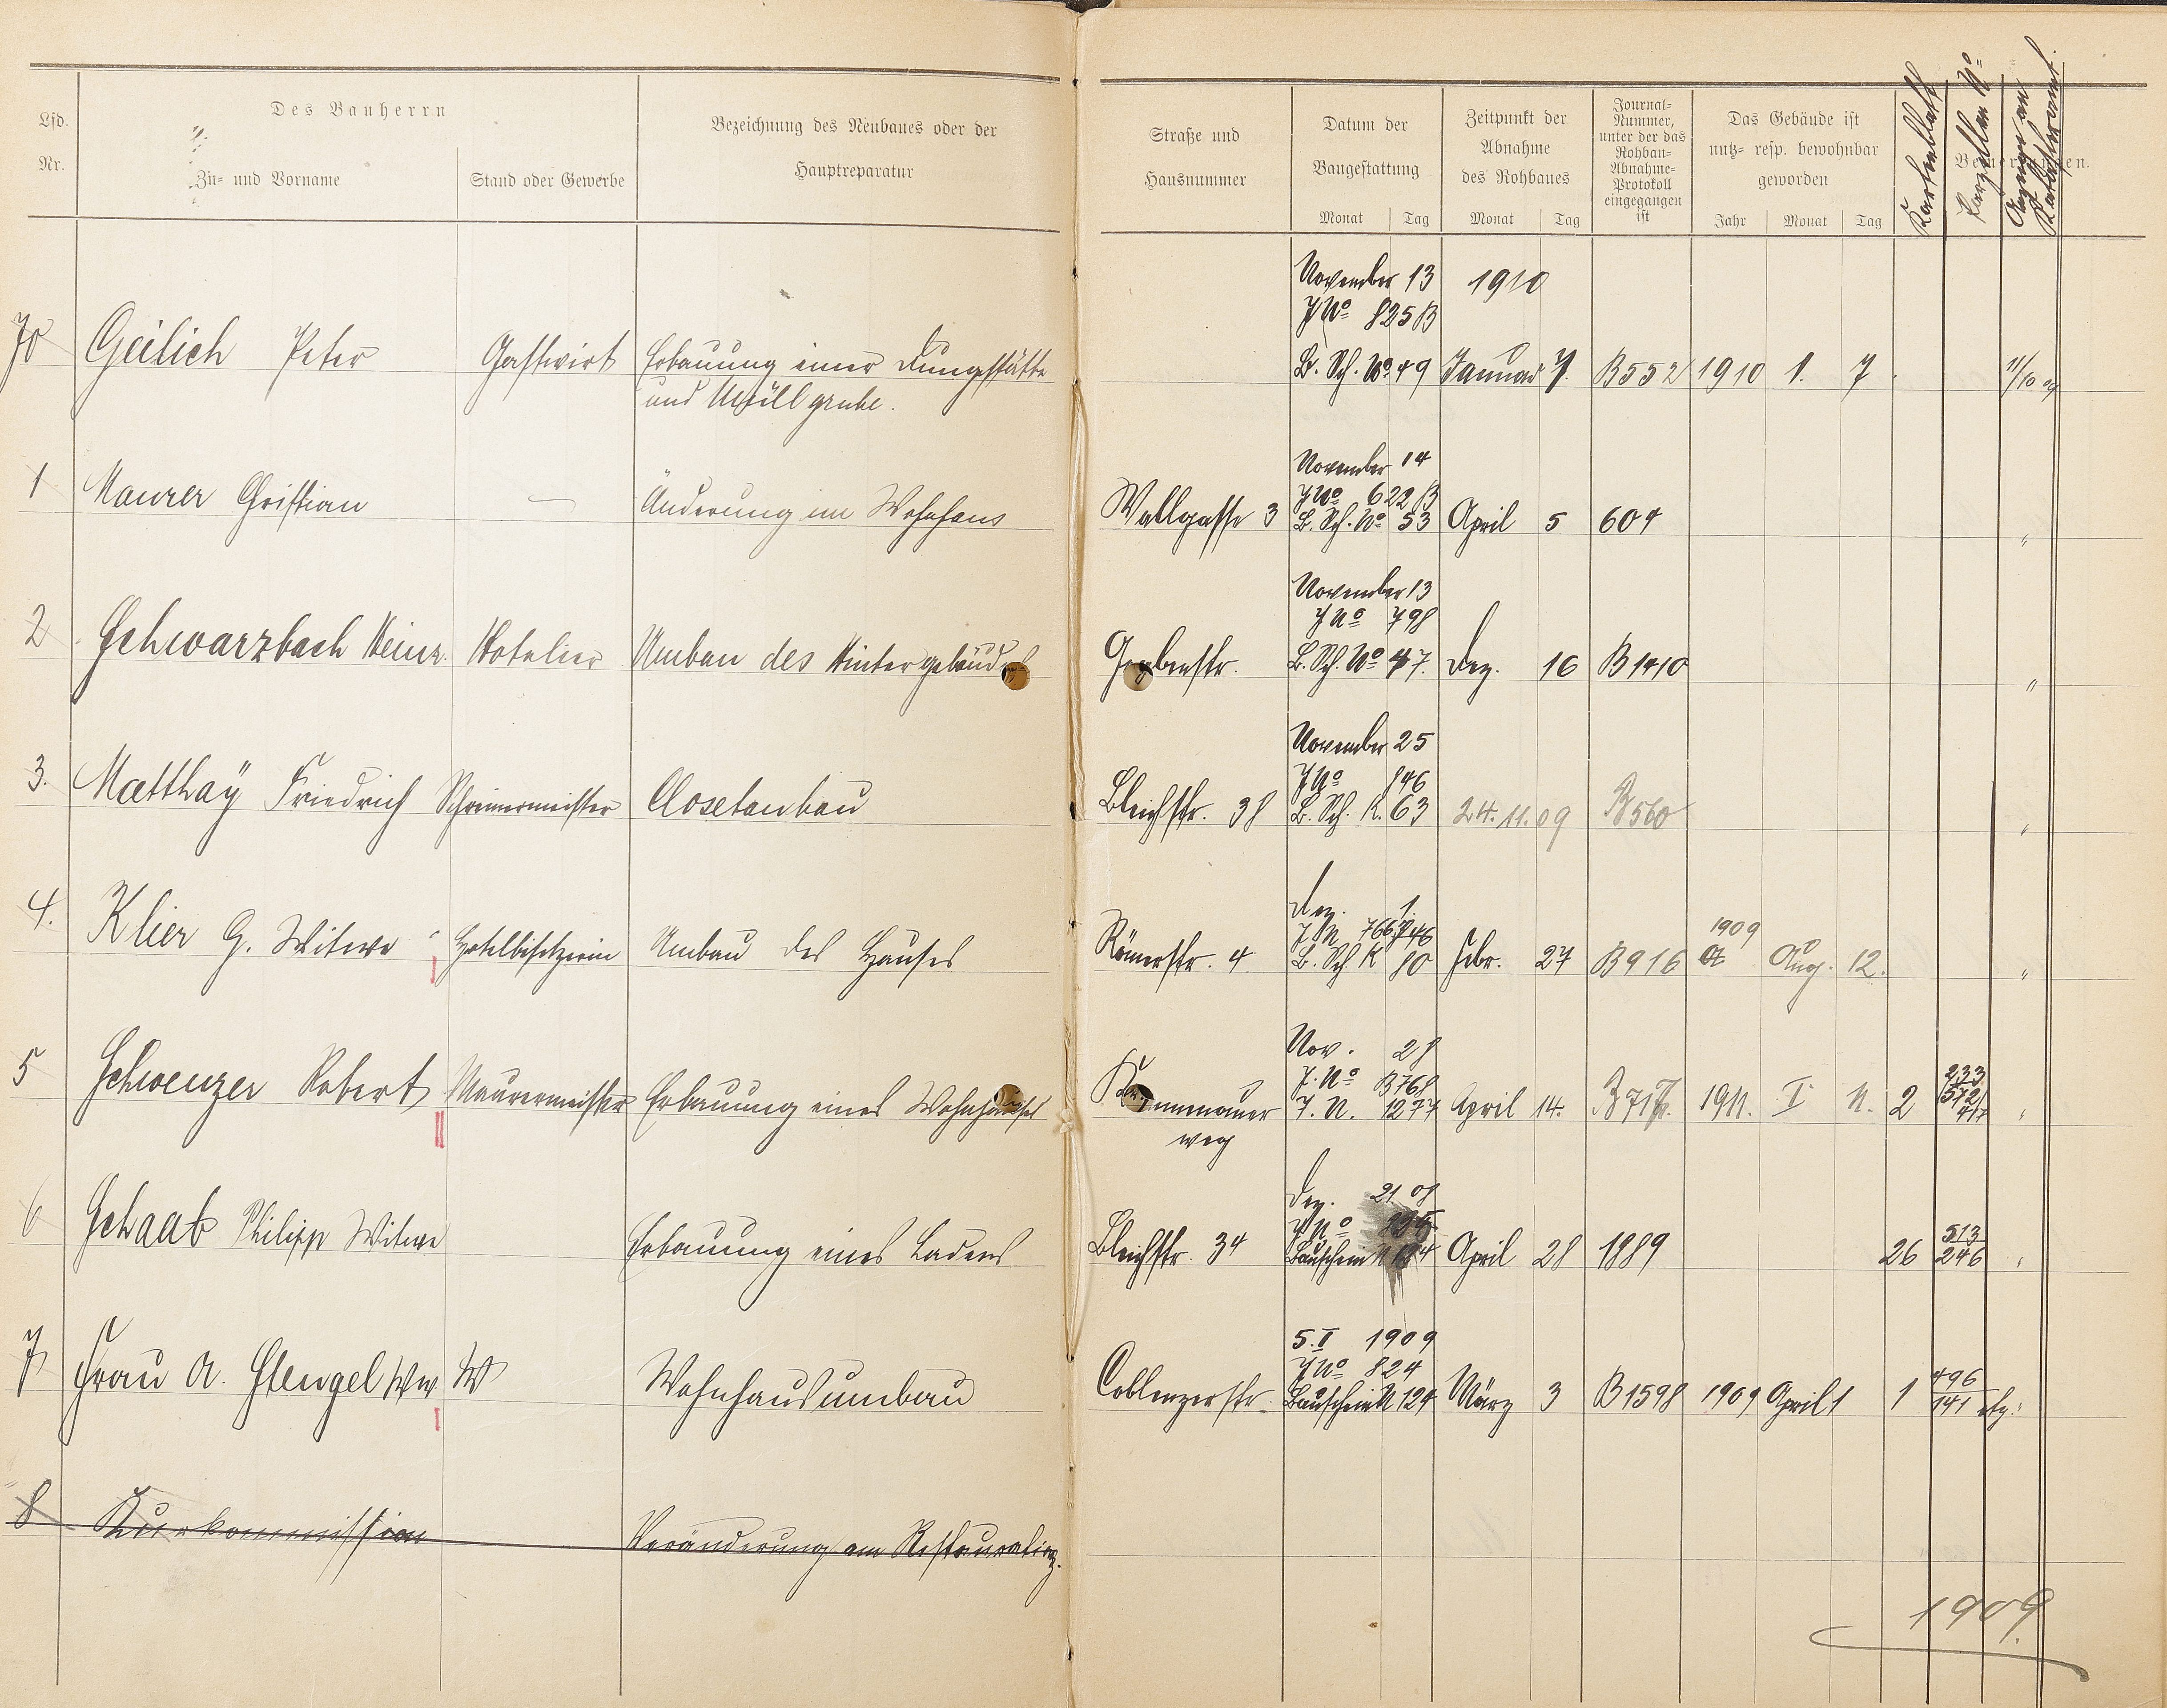 Lfd.
Nr.
Des Bauherrn
Zu- und Vorname
Stand oder Gewerbe
Bezeichnung des Neubaues oder der
Hauptreparatur
Straße und
Hausnummer
Datum der
Baugestattung
Monat Tag
Zeitpunkt der
Abnahme
des Rohbaues
Monat Tag
Journal-
Nummer,
unter der das
Rohbau-
Abnahme-
Protokoll
eingegangen
ist
Das Gebäude ist
nutz- resp. bewohnbar
geworden
Jahr Monat Tag
Kartenblatt
Parzellen No
Katasteramt
November 13 1910
J No 825 B
70 Geilich Peter Gastwirt Erbauung einer Dungstätte B. Sch. No 49 Januar 7. B 552 1910 1. 7 11/10 09
und Müllgrube.
November 14
J No 622 B
1 Maurer Christian — Änderung im Wohnhaus Wallgasse 3 B. Sch. No 53 April 5 604 "
November 13
J No 798
2 Schwarzbach Heinr. Hotelier Umbau des Hintergebäudes Grabenstr. B. Sch. No 47. Dez. 16 B 1410 "
November 25
J No 846
3. Matthäy Friedrich Schreinermeister Closetanbau Bleichstr. 38 B. Sch. K. 63 24.11.09 B 560 "
Dez. 1.
J N. 766
4. Klier G. Witwe Hotelbesitzerin Umbau des Hauses Römerstr. 4 B. Sch. K 80 Febr. 27 B 916 1909 Aug. 12. "
Nov. 28
J. No B 768
5 Schwenzer Robert Maurermeister Erbauung eines Wohnhauses J. N. 1277 April 14. 1911. I 11. 2 233
572
417
weg
Dez. 21 08
J No
6 Schaab Philipp Witwe Erbauung eines Ladens Bleichstr. 34 Bauschein N 134 April 28 1889 26 513
246
5. I 1909
J No 824
7 Frau A. Stengel Ww W Wohnhausumbau Coblenzerstr. Bauschein N 124 März 3 B 1598 1909 April 1 1 496
141 etz.
8 Kurkommission Veränderung am Restauration
1909.